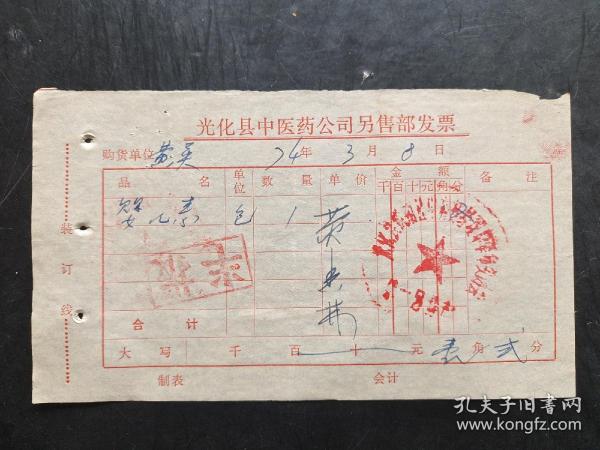 光化县中医药公司另售部发票
购货单位 黄英 74年 3月 8日
品名 单位 数量 单价 金额 备注
千百十元角分
包 1
合计
大写 千 百 十 元 壹角 弍分
制表 会计
装订线
孔夫子旧书网
www.kongfz.com